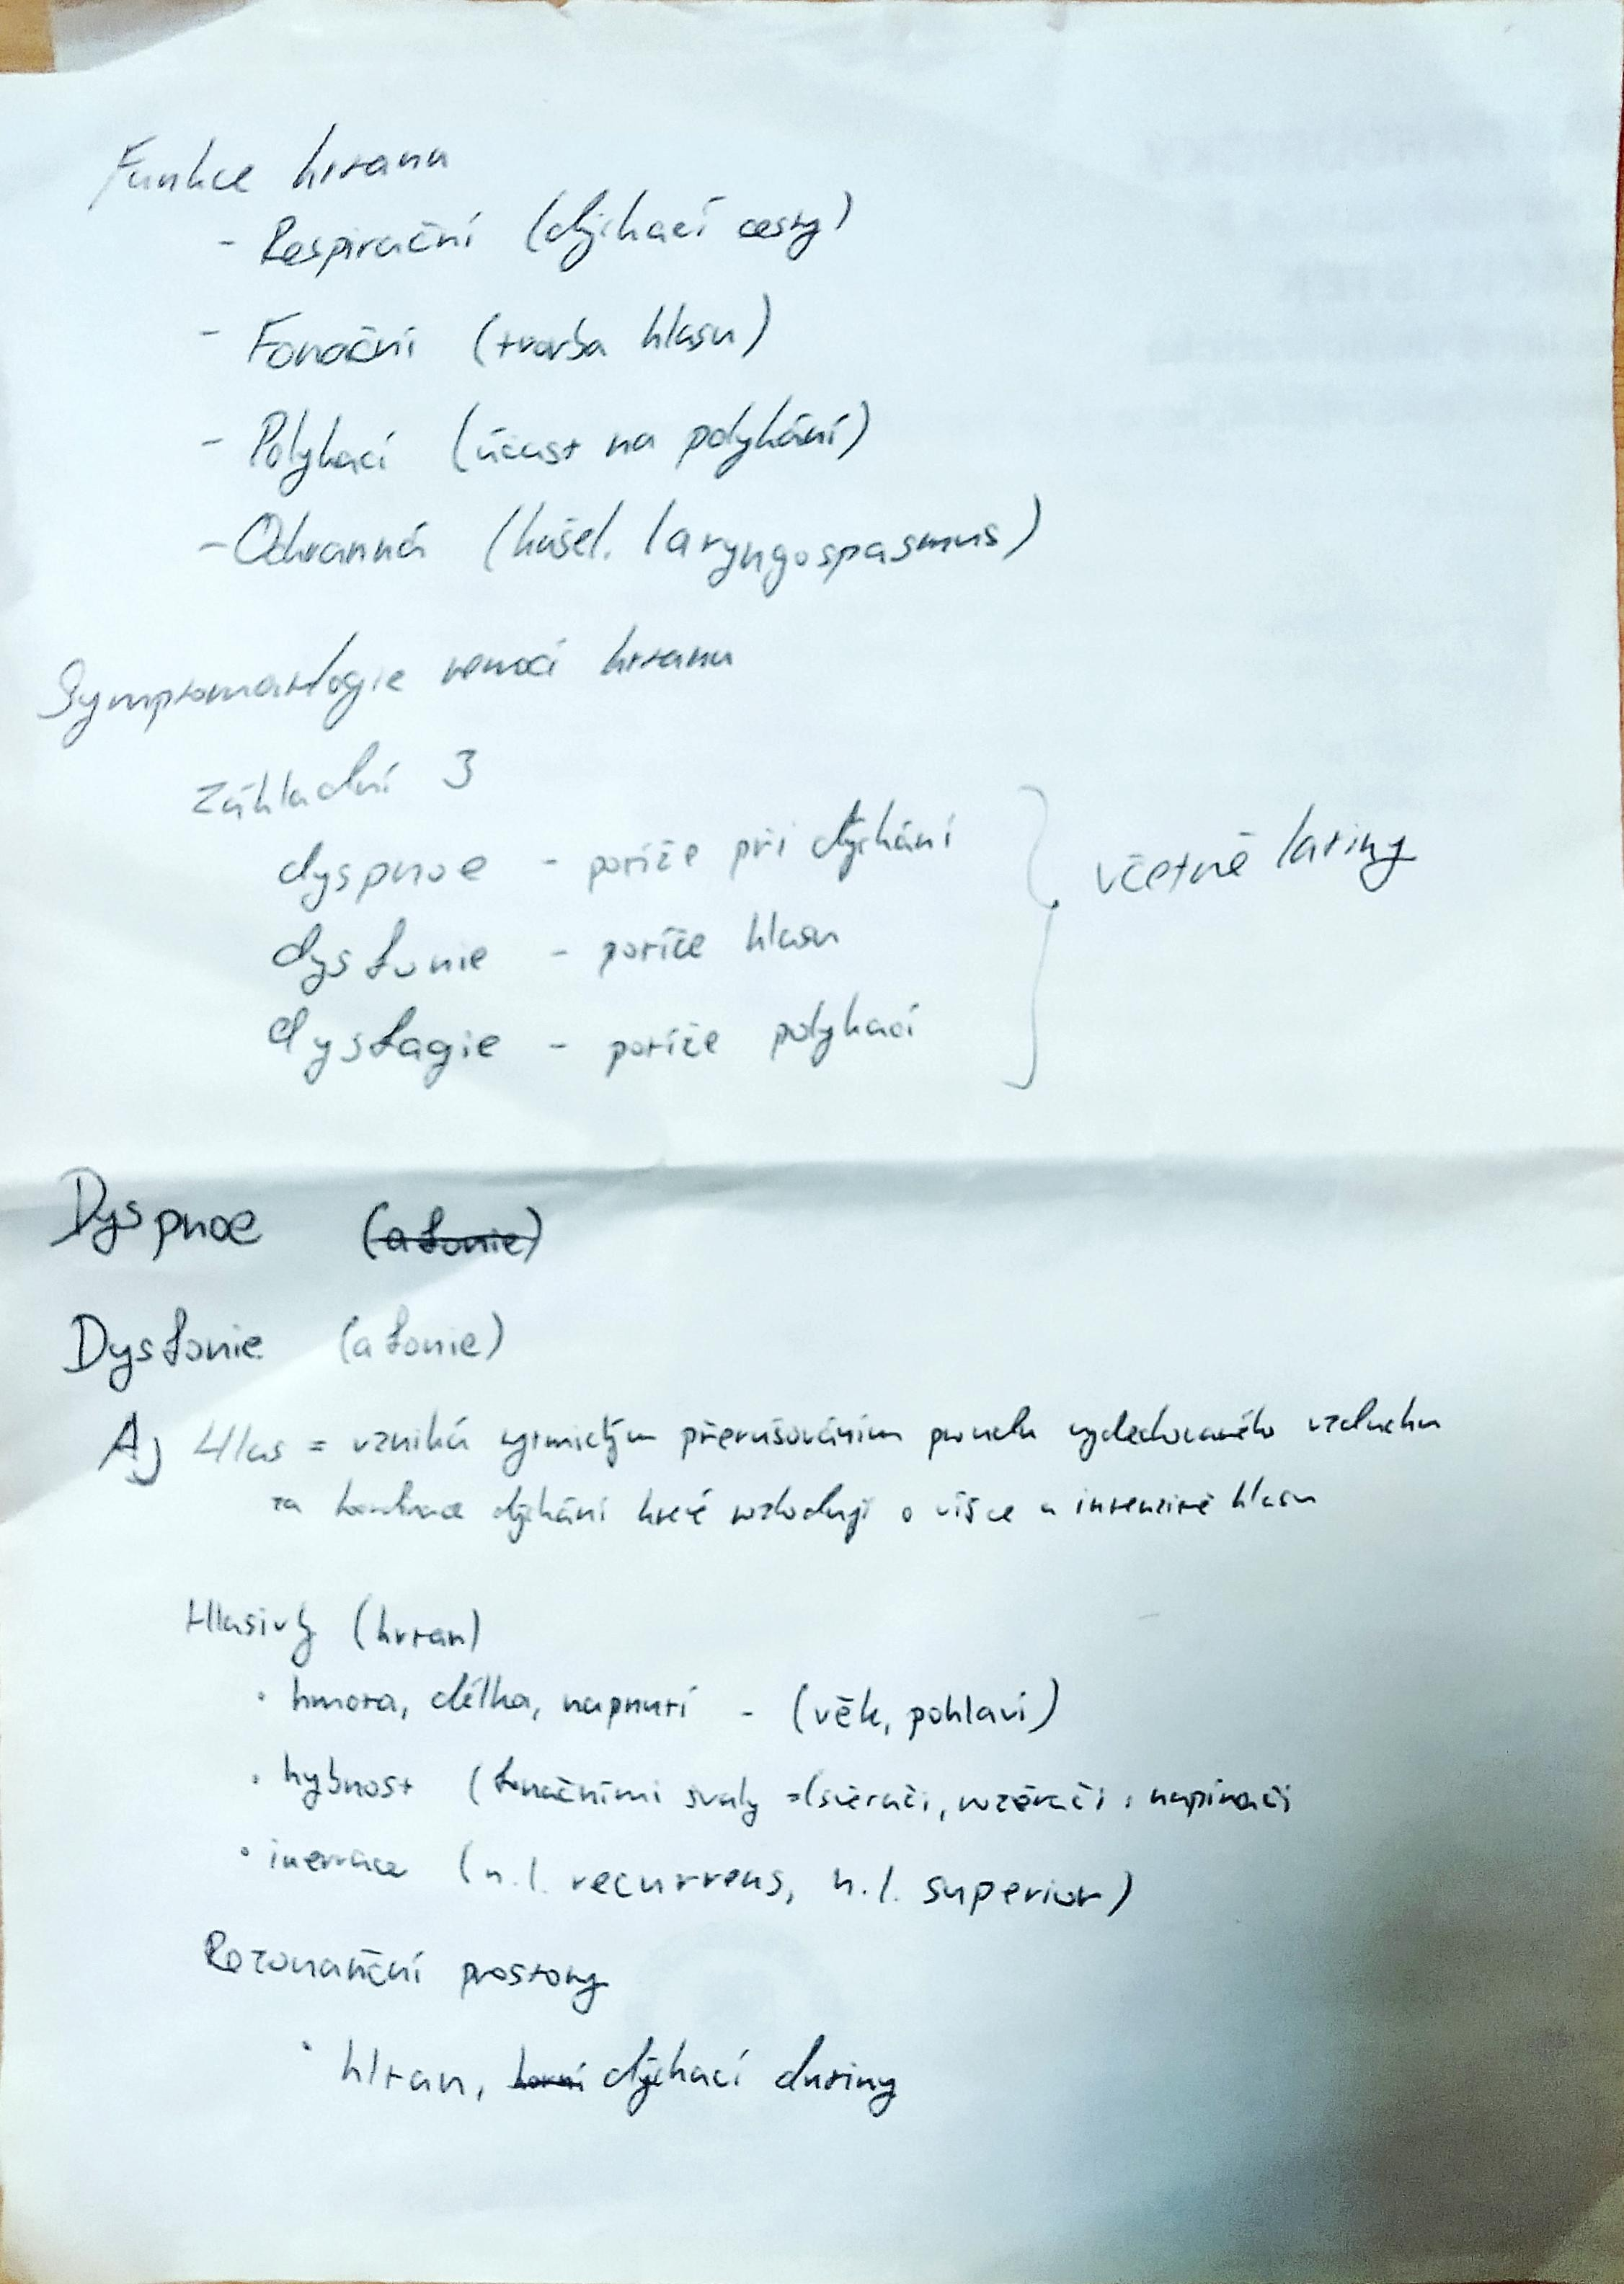 Funkce hrtanu
- Respirační (dýchací cesty)
- Fonační (tvorba hlasu)
- Polykací (účast na polykání)
- Ochranná (kašel. laryngospasmus)
Symptomatologie nemocí hrtanu
základní 3
dyspnoe - potíže při dýchání
dysfonie - potíže hlasu
dysfagie - potíže polykací
} včetně latiny
Dyspnoe (afonie)
Dysfonie (afonie)
A) Hlas = vzniká rytmickým přerušováním proudu vydechovaného vzduchu
za dýchání které rozhodují o výšce a intenzitě hlasu
Hlasivky (hrtan)
• hmota, délka, napnutí - (věk, pohlaví)
• hybnost (fonačními svaly =(svěrači, rozěrači, napínači
• inervace (n.l. recurrens, n.l. superior)
Rezonanční prostory
• hltan, horní dýchací dutiny